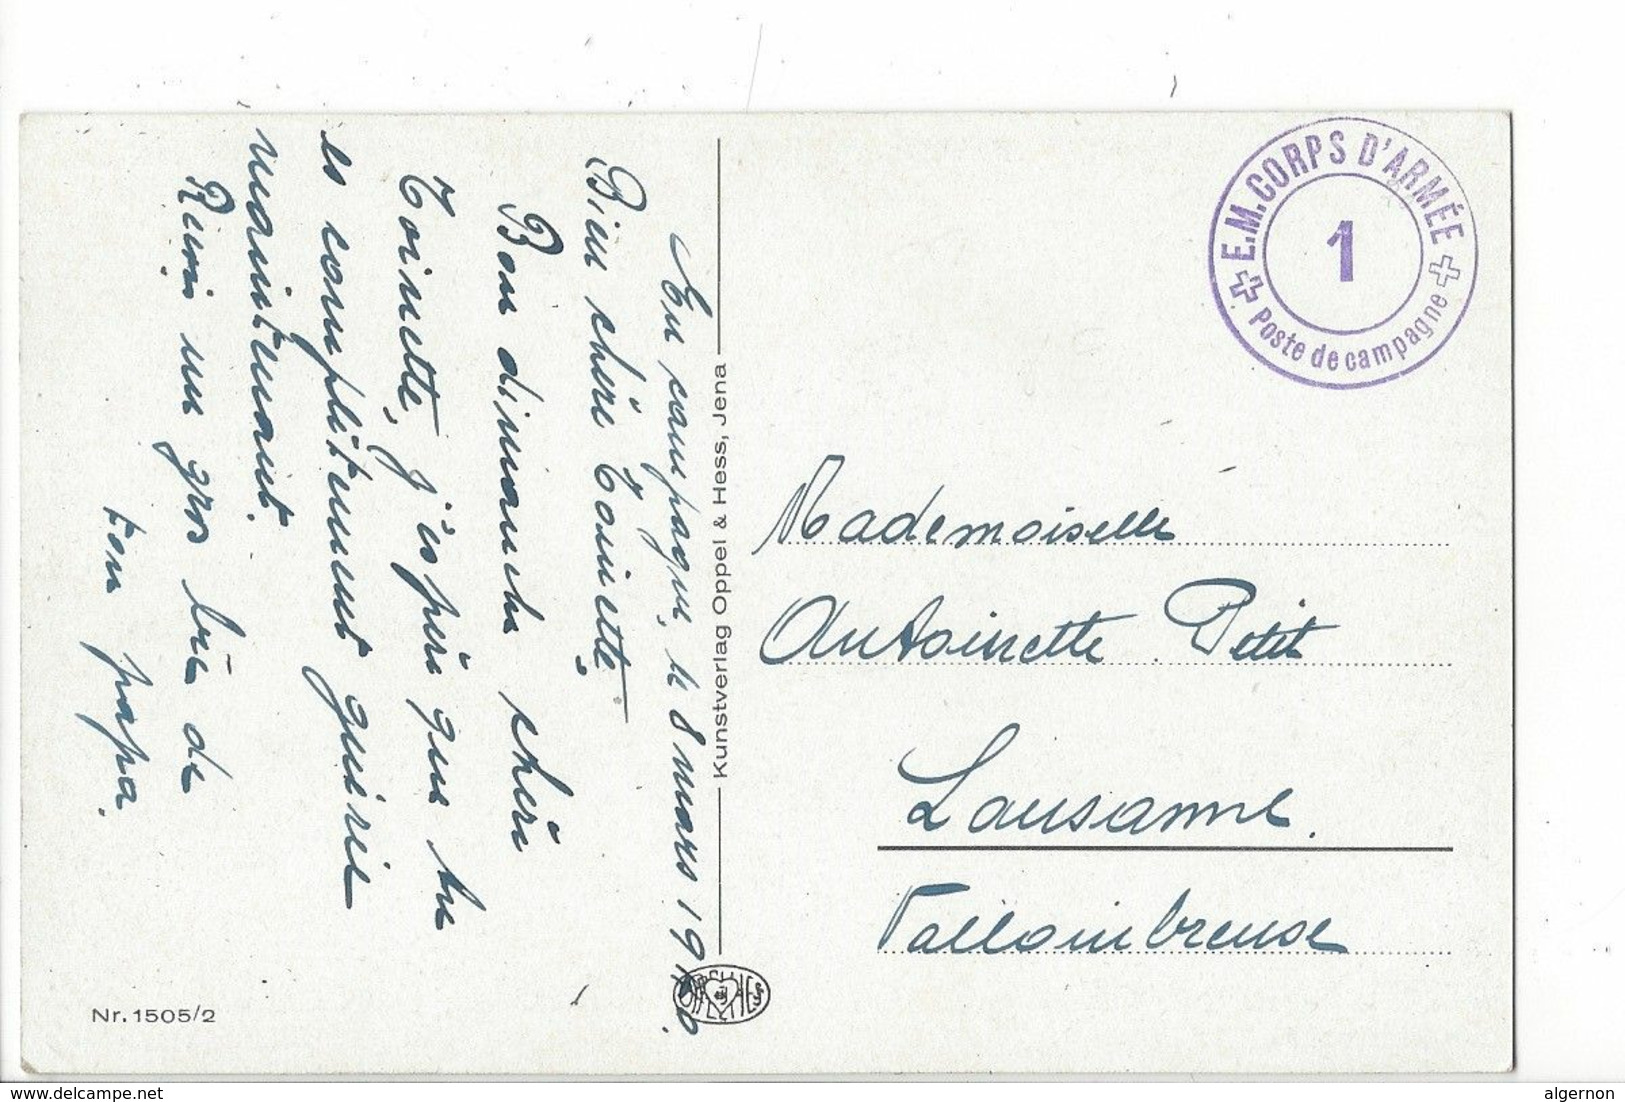 En campagne, le 8 mars 1940.
Bien chère Toinette,
Bon dimanche chère
Toinette, j'espère que tu
es complètement guérie
maintenant.
Reçois un gros bec de
ton papa.
Kunstverlag Oppel & Hess, Jena
Nr. 1505/2
E.M. CORPS D'ARMÉE
1
Poste de campagne
Mademoiselle
Antoinette Petit
Lausanne.
Vallombreuse
www.delcampe.net
algernon